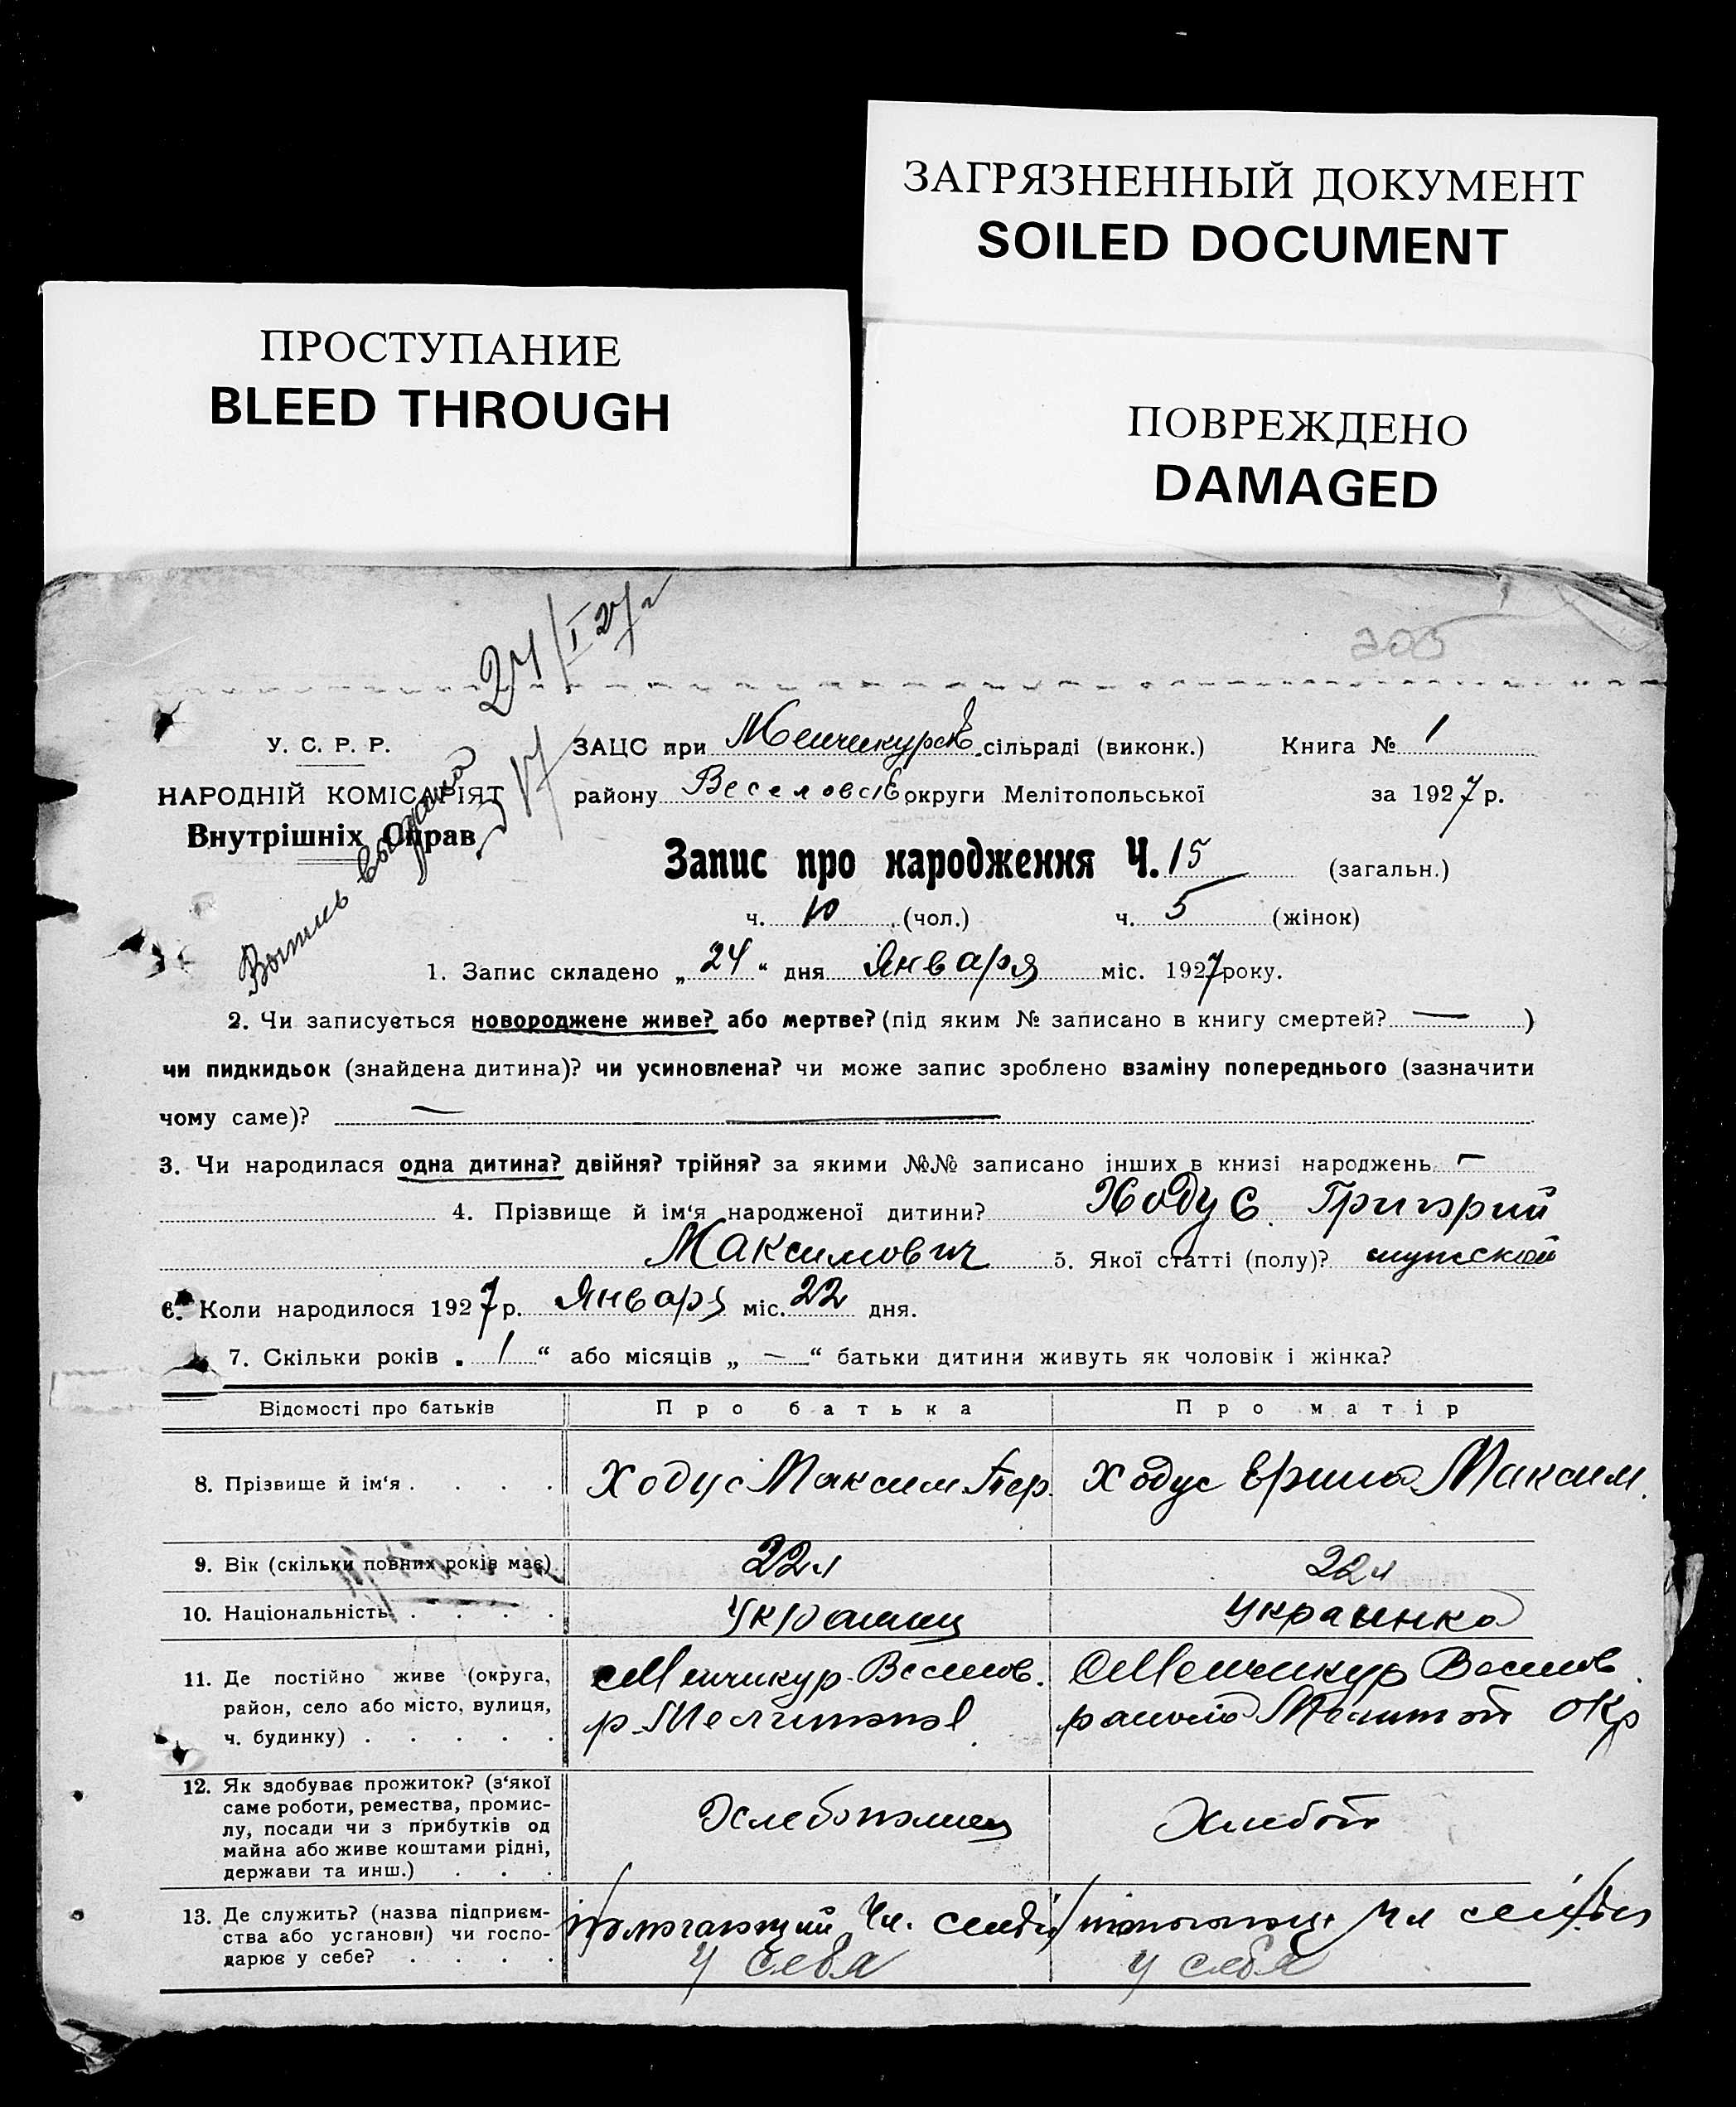 ЗАГРЯЗНЕННЫЙ ДОКУМЕНТ
SOILED DOCUMENT
ПРОСТУПАНИЕ
BLEED THROUGH
ПОВРЕЖДЕНО
DAMAGED
24/I 27 г
205
У. С. Р. Р.
НАРОДНІЙ КОМІСАРІЯТ
Внутрішніх Справ
Выпись выдана
ЗАЦС при Менчикурск. сільраді (виконк.) Книга № 1
району Веселовск округи Мелітопольської за 1927 р.
Запис про народження Ч. 15 (загальн.)
ч. 10 (чол.) ч. 5 (жінок)
1. Запис складено „ 24 “ дня Января міс. 1927 року.
2. Чи записується новороджене живе? або мертве? (під яким № записано в книгу смертей? — )
чи пидкидьок (знайдена дитина)? чи усиновлена? чи може запис зроблено взаміну попереднього (зазначити
чому саме)? —
3. Чи народилася одна дитина? двійня? трійня? за якими №№ записано інших в книзі народжень —
4. Прізвище й ім‘я народженої дитини? Ходус Григорий
Максимович 5. Якої статті (полу)? мужской
6. Коли народилося 1927 р. Января міс. 22 дня.
7. Скільки років „ 1 “ або місяців „ — “ батьки дитини живуть як чоловік і жінка?
Відомості про батьків Про батька Про матір
8. Прізвище й ім‘я . . . . Ходус Максим Ходус Максим.
9. Вік (скільки повних років має) 22 л 22 л
10. Національність . . . . Украинец Украинка
11. Де постійно живе (округа,
район, село або місто, вулиця,
ч. будинку) . . . . .
с Менчикур. Веселов. с Менчикур Веселов.
р. Мелитопол района Мелитоп окр
12. Як здобуває прожиток? (з‘якої
саме роботи, ремества, промис-
лу, посади чи з прибутків од
майна або живе коштами рідні,
держави та инш.) . . .
Хлебопашец Хлебоп
13. Де служить? (назва підприєм-
ства або установи) чи госпо-
дарює у себе? . . . .
помогающий Чл. семьи Чл семьи
у себя у себя